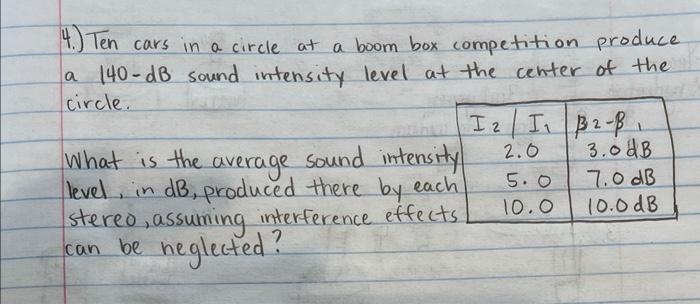 4.) Ten cars in a circle at a boom box competition produce
a 140-dB sound intensity level at the center of the
circle.
I2 / I1 β2-β1
What is the average sound intensity 2.0 3.0 dB
level, in dB, produced there by each 5.0 7.0 dB
stereo, assuming interference effects 10.0 10.0 dB
can be neglected?